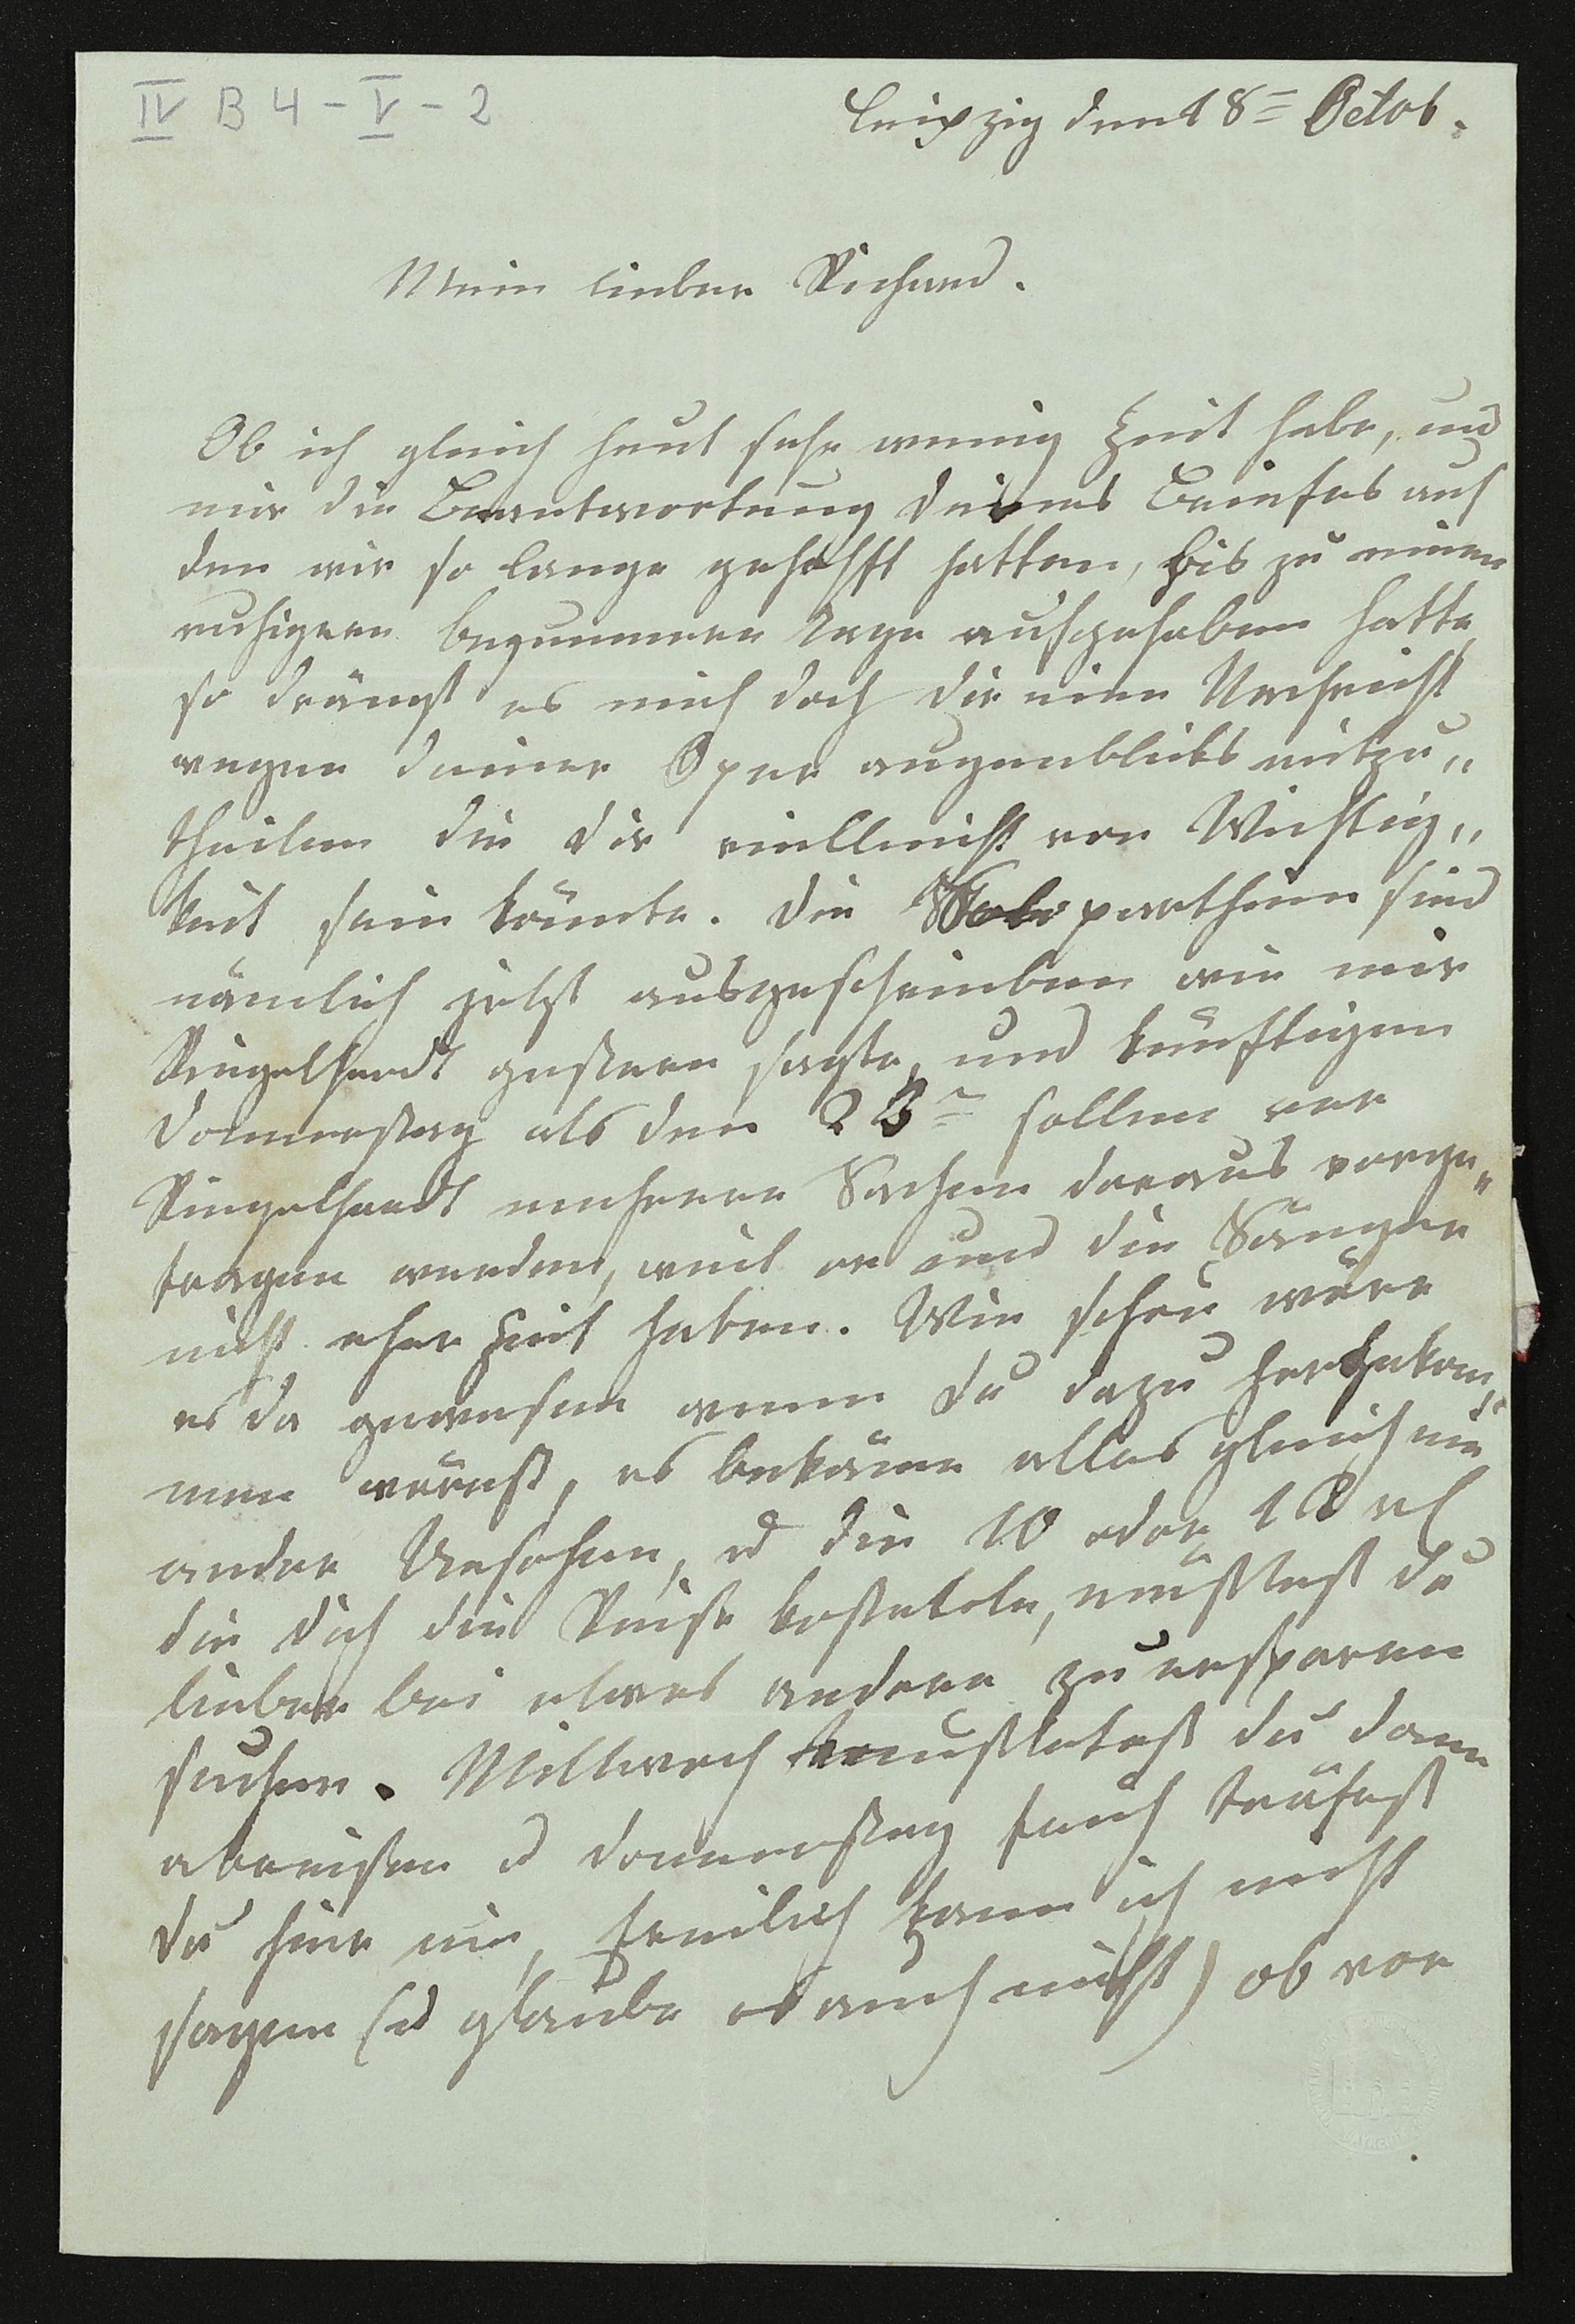 IV B 4 - V - 2
Leipzig den 18= Octob.
Mein lieber Richard.
Ob ich gleich heut sehr wenig Zeit habe, und
mir die Beantwortung deines Briefes auf
den wir so lange gehofft hatten, bis zu einem
ruhigern bequemern Tage aufgehoben hatte
so drängt es mich doch dir eine Nachricht
wegen deiner Oper augenbliks mitzu„
theilen die dir viellleicht von Wichtig„
keit sein könnte. Die Soloparthien sind
nämlich jetzt ausgeschrieben wie mir
Ringelhardt gestern sagte, und künftigen
Donnerstag als den 23= sollen vor
Ringelhardt mehrere Sachen daraus vorge„
tragen werden, weil er und die Sänger
nicht eher Zeit haben. Wie schön wäre
es da gewesen wenn du dazu hergekom„
men wärest, es bekäme alles gleich ein
ander Ansehen, u die 10 oder 12 rl
die dich die Reise kostetete, müsstest du
lieber bei etwas andern zu ersparen
suchen. Mittwoch müsstetest du dann
abreisen u Donnerstag früh träfest
du hier ein, freilich kann ich nicht
sagen (u glaube es auch nicht) ob vor